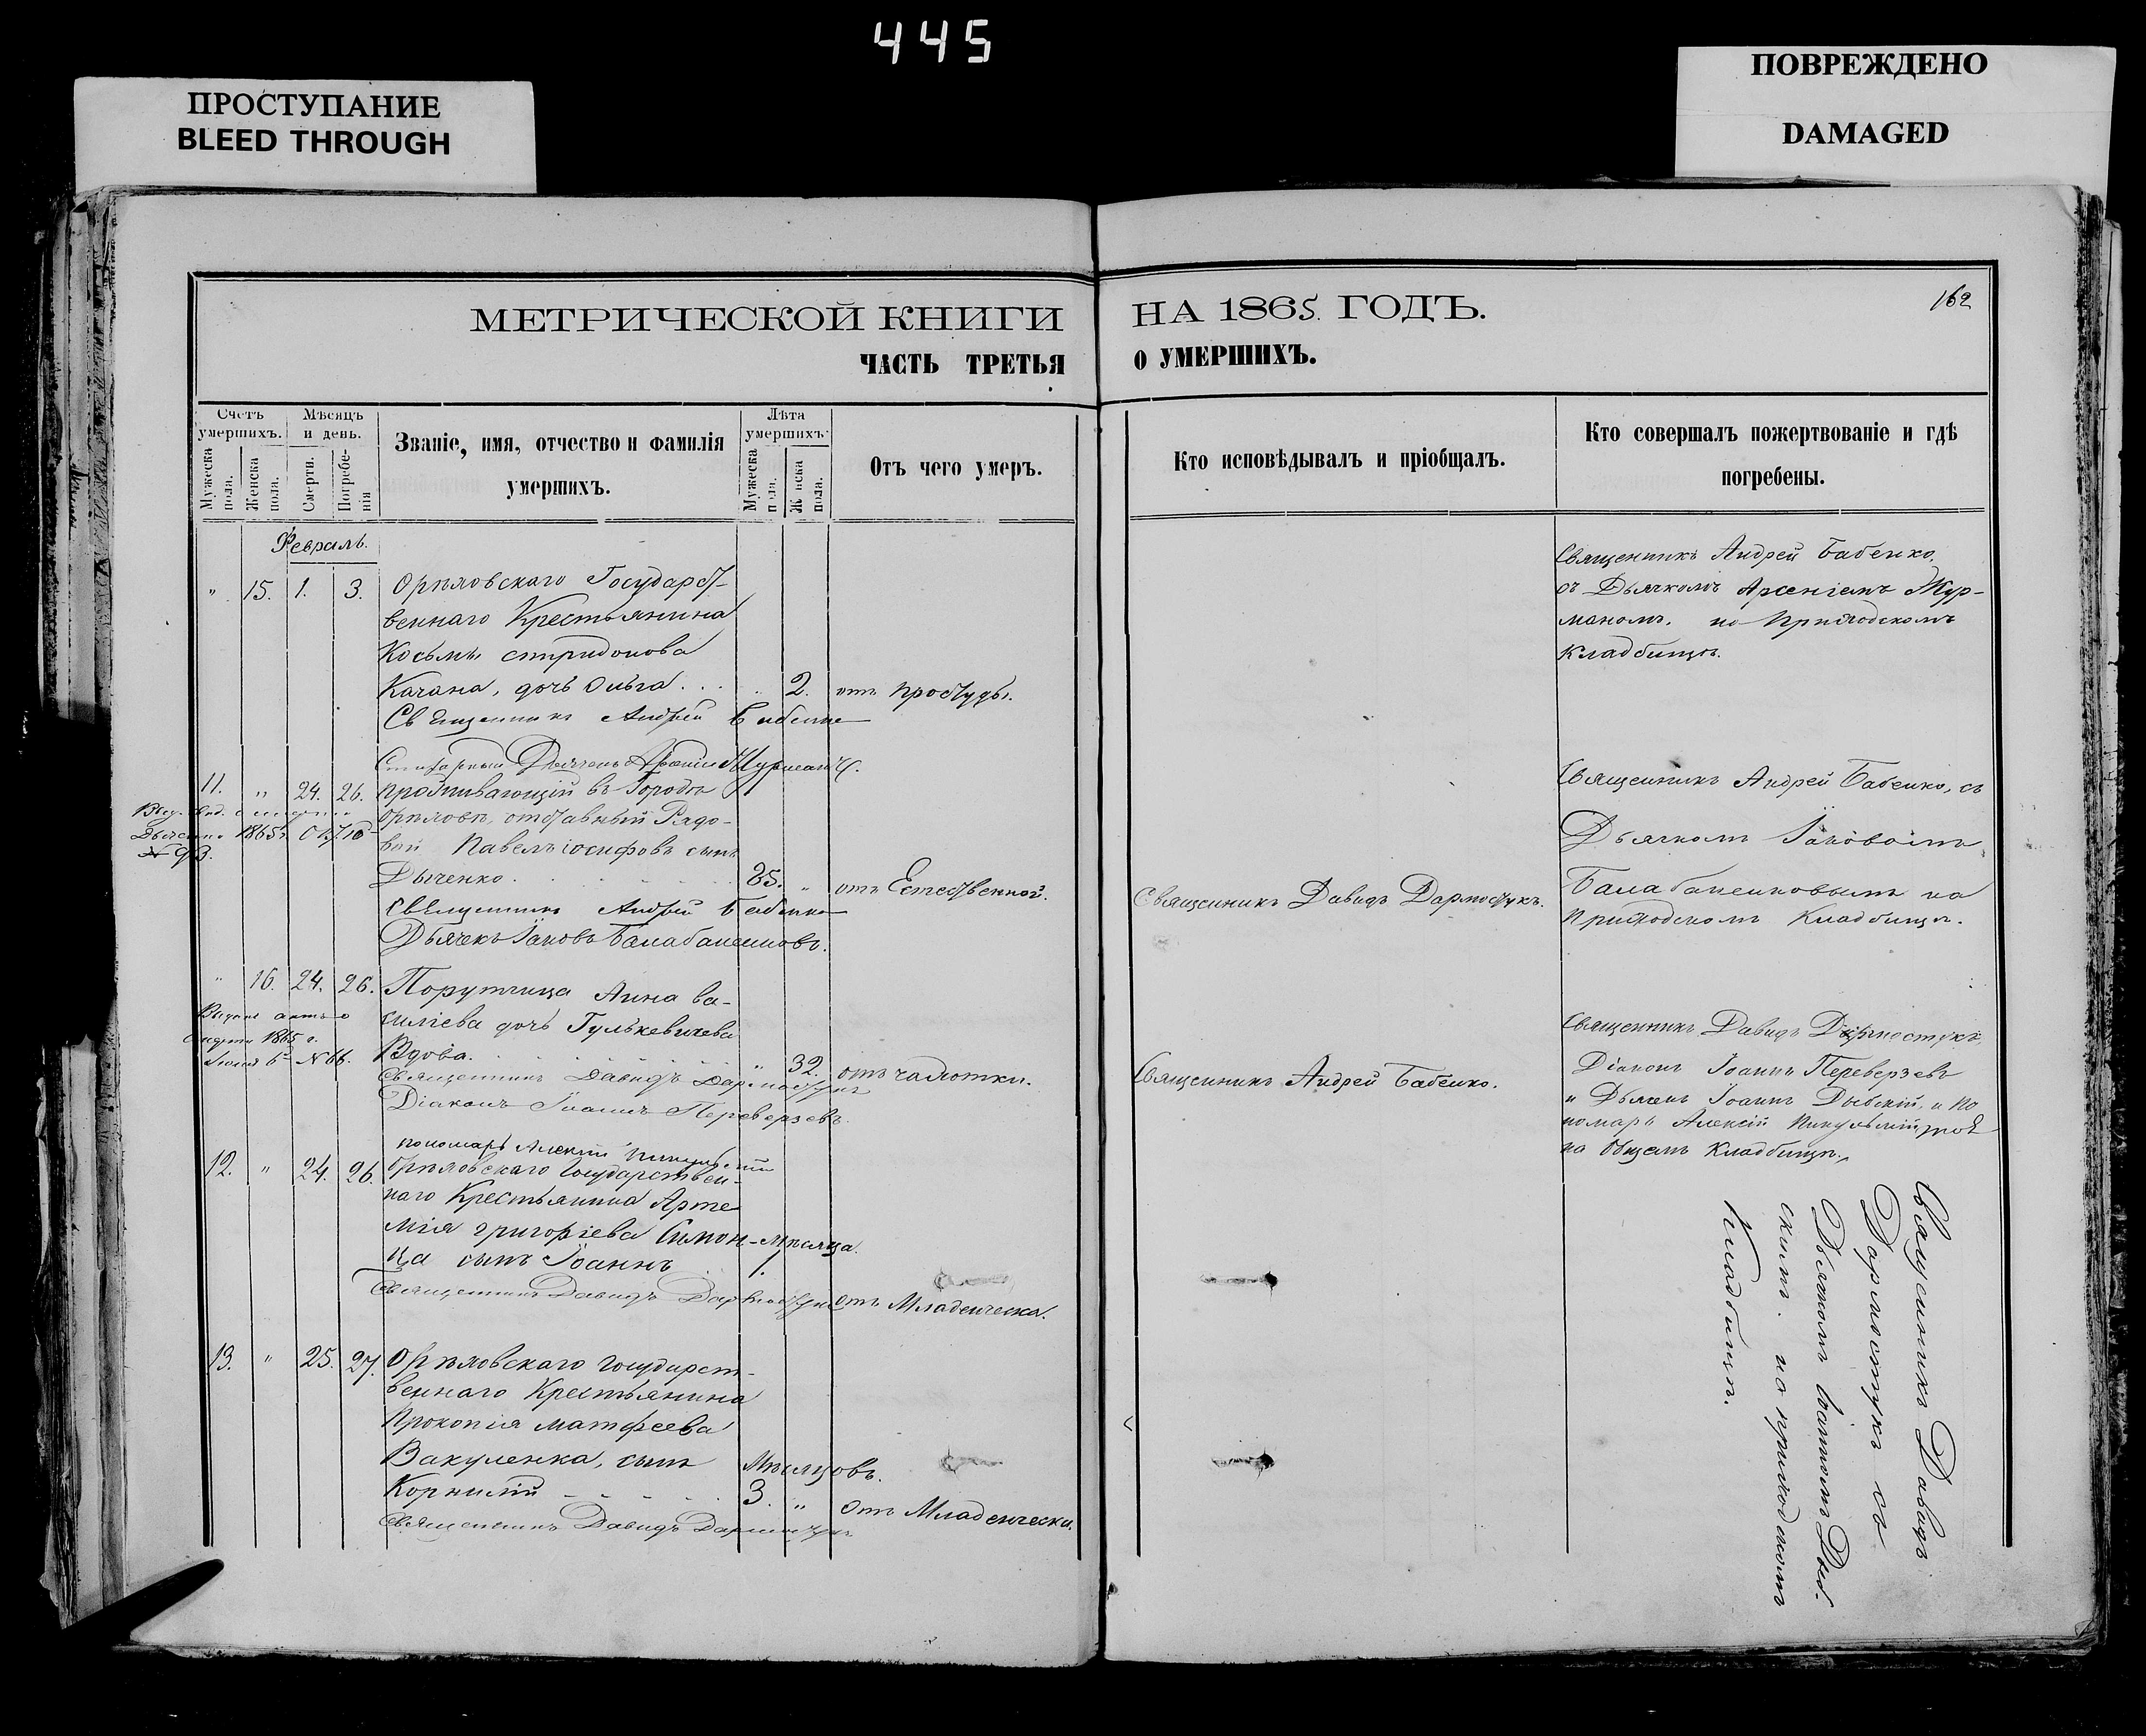 445
ПРОСТУПАНИЕ
BLEED THROUGH
ПОВРЕЖДЕНО
DAMAGED
МЕТРИЧЕСКОЙ КНИГИ
ЧАСТЬ ТРЕТЬЯ
Счетъ умершихъ.
Мужеска пола.
Женска пола.
Мѣсяцъ и день.
Смерти.
Погребенія
Званіе, имя, отчество и фамилія
умершихъ.
Лѣта умершихъ
Мужеска пола.
Женска пола.
Отъ чего умеръ.
Февраль.
" 15. 1. 3. Орѣховскаго Государст-
веннаго Крестьянина
Косьмы спиридонова
Качана, дочь Ольга . . . 2. отъ простуды.
Священникъ Андрей Бабенко
Дьячекъ Арсеній Журманъ.
11. " 24. 26. проживающій въ Городѣ
Орѣховѣ, отставный Рядо-
вой Павелъ іосифовъ сынъ
Дыченко . 85. " отъ Естественной.
Священникъ Андрей Бабенко
Дьячекъ Іаковъ Балабаненковъ.
1865 г.
№ 93.
" 16. 24. 26. Порутчица Анна ва-
силіева дочь Гулькевичева
Вдова. " 32. отъ чахотки.
Священникъ Давидъ Дармостукъ
Діаконъ Іоаннъ Переверзевъ
пономарь Алексій
1865 г.
№ 66.
12. " 24. 26. Орѣховскаго Государствен-
наго Крестьянина Арте
мія григоріева Симон- мѣсяца.
ца сынъ Іоаннъ 1.
Священникъ Давидъ Дармостукъ отъ Младенческа.
13. " 25. 27. Орѣховскаго Государст-
веннаго Крестьянина
Прокопія матфеева
Вакуленка, сынъ Мѣсяцовъ.
Корнилій 3. " отъ Младенческа.
Священникъ Давидъ Дармостукъ
НА 1865. ГОДЪ.
162
О УМЕРШИХЪ.
Кто исповѣдывалъ и пріобщалъ.
Кто совершалъ пожертвованіе и гдѣ
погребены.
Священникъ Андрей Бабенко,
съ Дьячкомъ Арсеніемъ Жур-
маномъ. на Приходскомъ
Кладбищѣ.
Священникъ Давидъ Дармостукъ.
Священникъ Андрей Бабенко, съ
Дьячкомъ Іаковомъ
Балабаненковымъ на
приходскомъ Кладбищѣ.
Священникъ Андрей Бабенко.
Священникъ Давидъ Дармостукъ,
Діаконъ Іоаннъ Переверзевъ
и Дьячекъ Іоаннъ Дѣевскій, и по
номарь Алексій
на Общемъ Кладбищѣ.
Священникъ Давидъ
Дармостукъ съ
Дьячкомъ Іоанномъ Дѣев-
скимъ. на приходскомъ
Кладбищѣ.